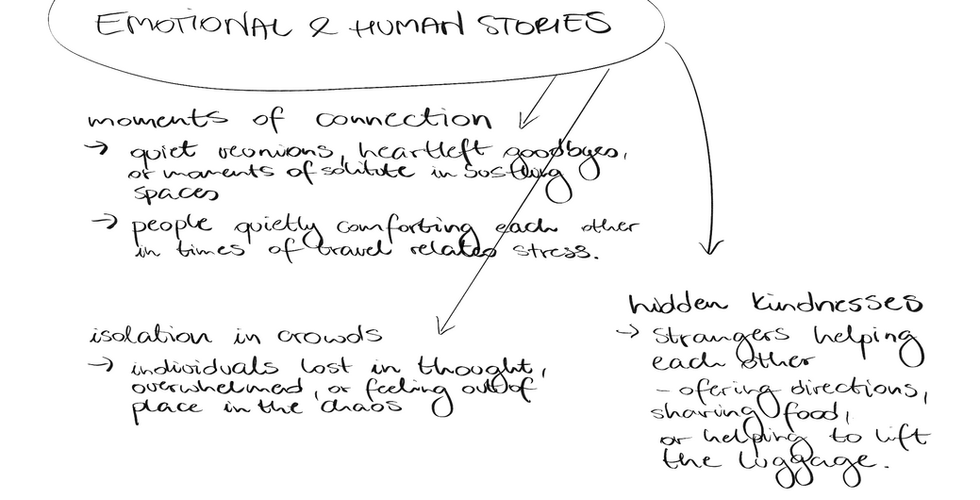 EMOTIONAL & HUMAN STORIES
moments of connection
→ quiet reunions, heartleft goodbyes,
or moments of solitute in bustling
spaces
→ people quietly comforting each other
in times of travel related stress.
isolation in crowds
→ individuals lost in thought,
overwhelmed, or feeling out of
place in the chaos
hidden kindnesses
→ strangers helping
each other
- offering directions,
sharing food,
or helping to lift
the luggage.